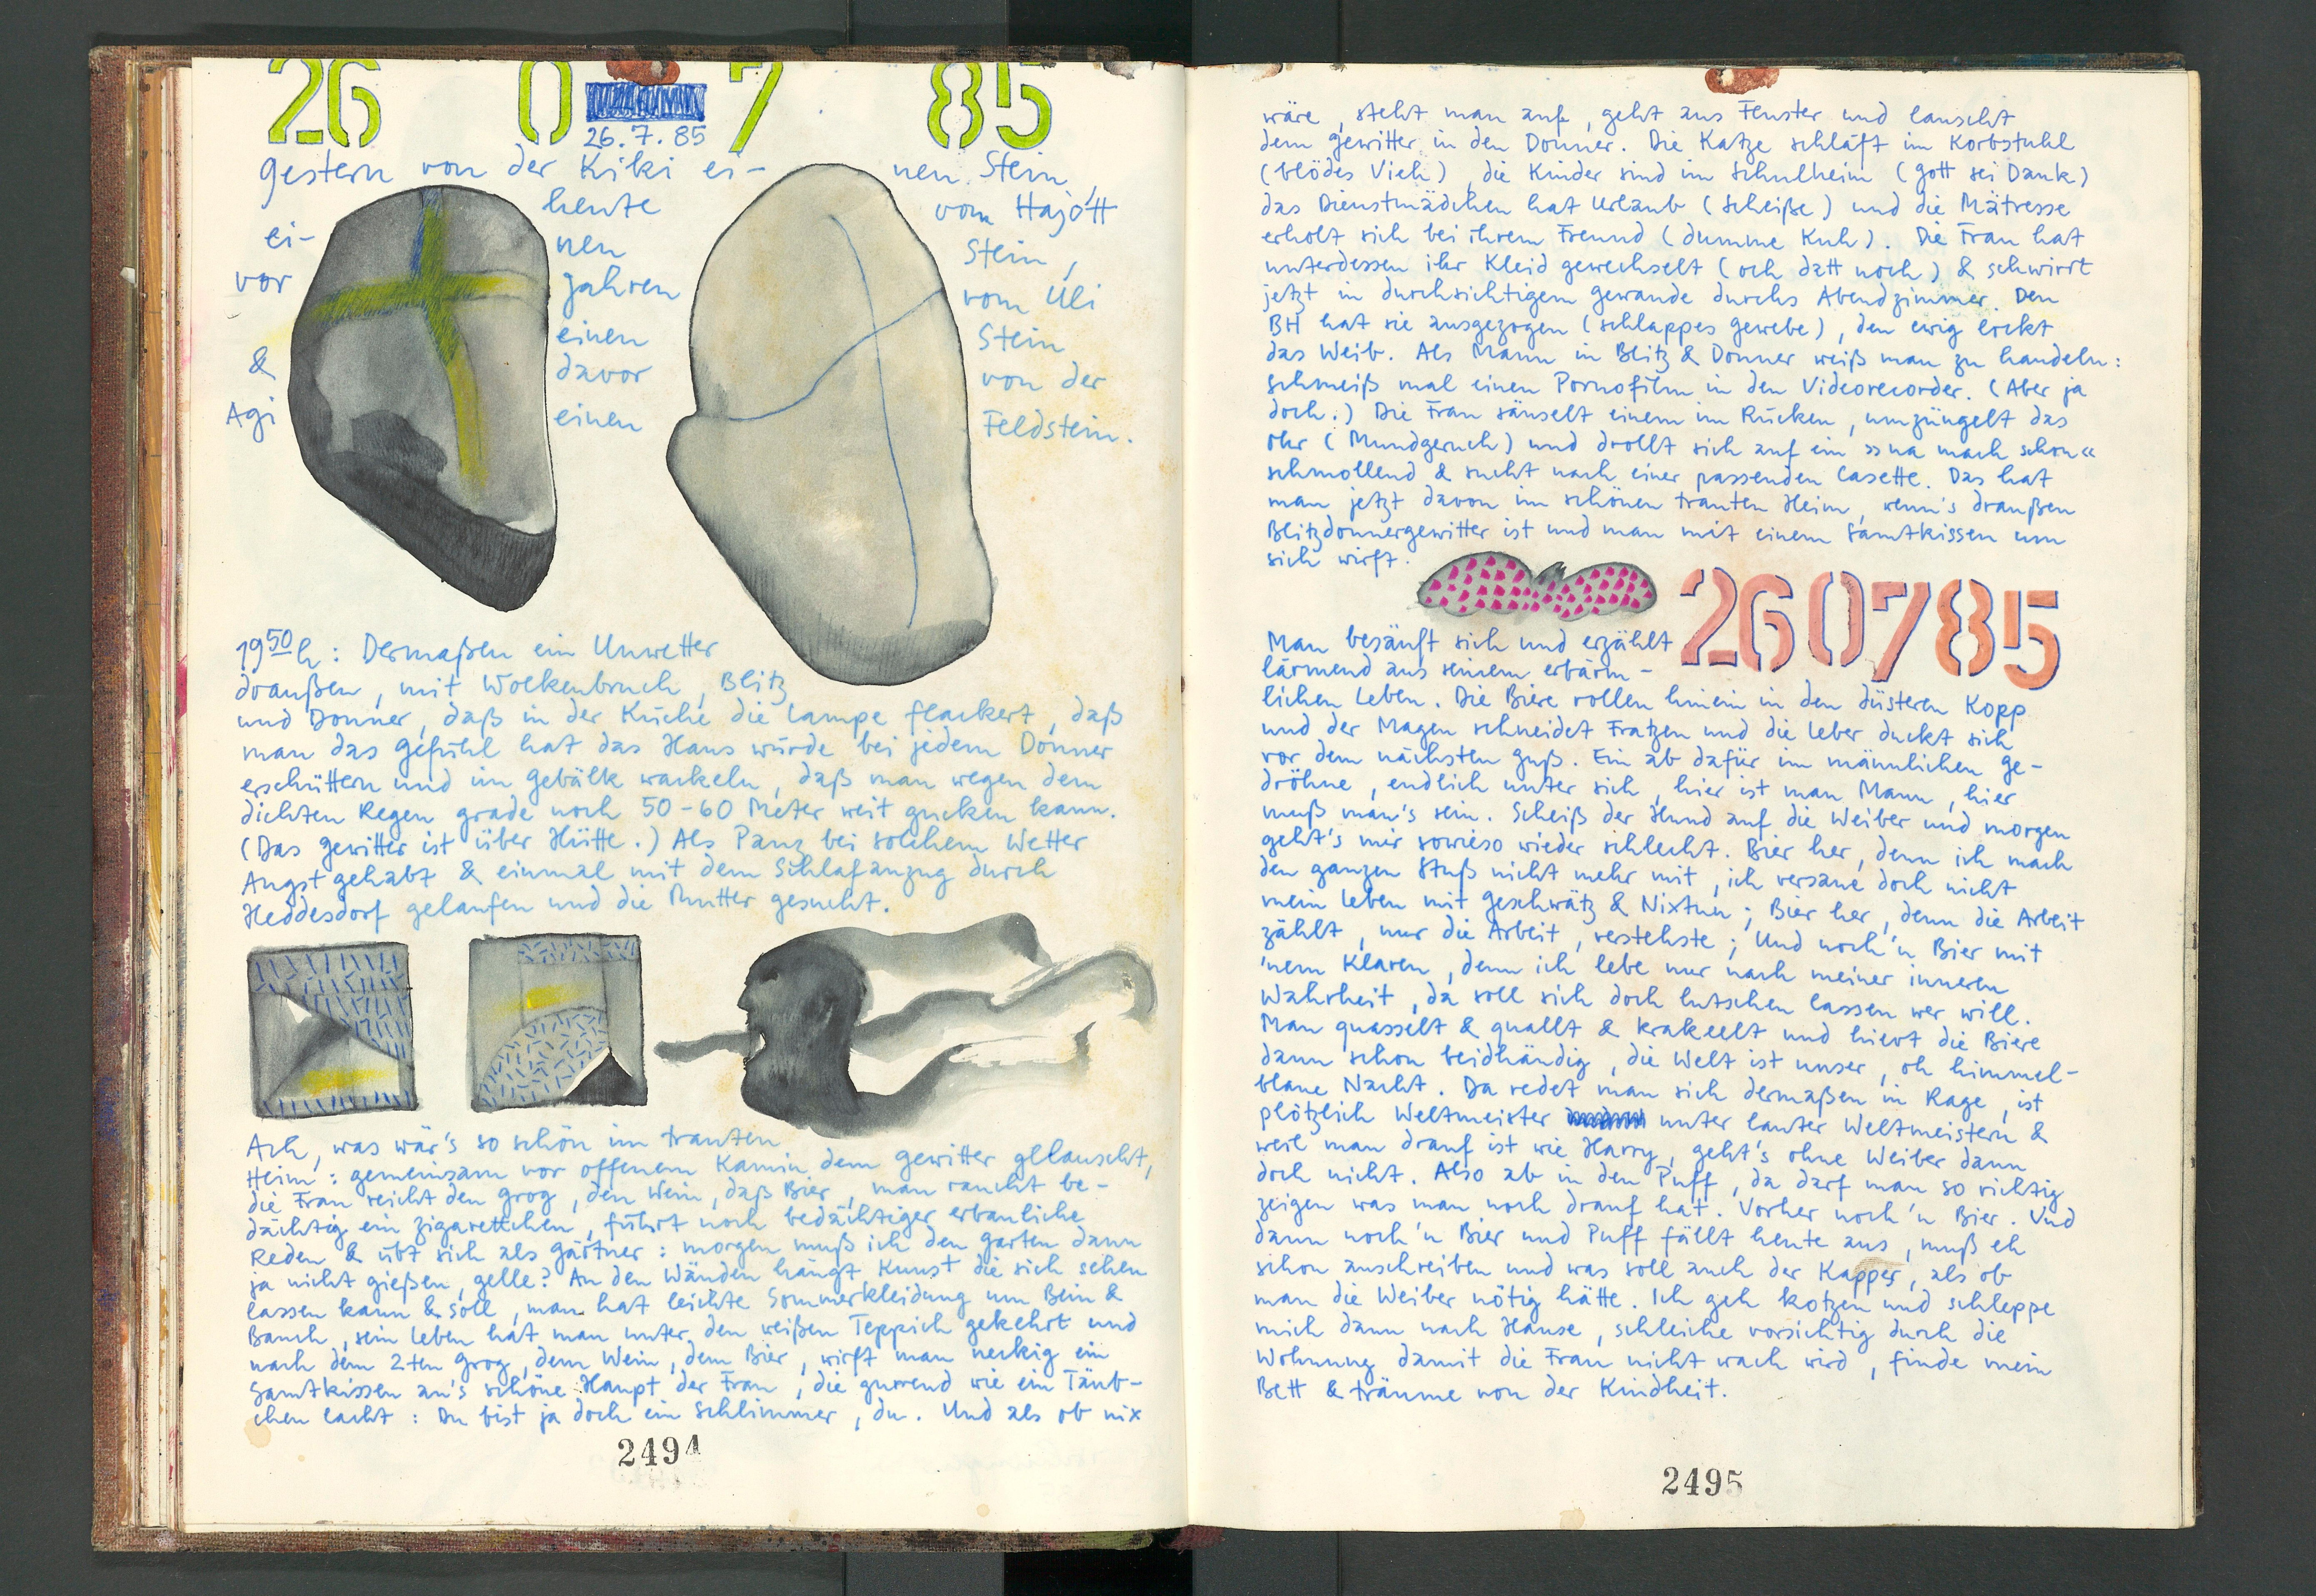 26 0 7 85
26.7.85
gestern von der Kiki ei- nen Stein,
heute vom Hajott
ei- nen Stein,
vor Jahren vom Uli
einen Stein
& davor von der
Agi einen Feldstein.
19⁵⁰h: Dermaßen ein Unwetter
draußen, mit Wolkenbruch, Blitz
und Donner, daß in der Küche die Lampe flackert, daß
man das Gefühl hat das Haus würde bei jedem Donner
erschüttern und im Gebälk wackeln, daß man wegen dem
dichten Regen grade noch 50-60 Meter weit gucken kann.
(Das Gewitter ist über Hütte.) Als Panz bei solchem Wetter
Angst gehabt & einmal mit dem Schlafanzug durch
Heddesdorf gelaufen und die Mutter gesucht.
Ach, was wär's so schön im trauten
Heim: gemeinsam vor offenem Kamin dem Gewitter gelauscht,
die Frau reicht den Grog, den Wein, daß Bier, man raucht be-
dächtig ein Zigarettchen, führt noch bedächtiger erbauliche
Reden & übt sich als Gärtner: morgen muß ich den Garten dann
ja nicht gießen, gelle? An den Wänden hängt Kunst die sich sehen
lassen kann & soll, man hat leichte Sommerkleidung um Bein &
Bauch, sein Leben hat man unter den weißen Teppich gekehrt und
nach dem 2ten Grog, dem Wein, dem Bier, wirft man neckig ein
Samtkissen an's schöne Haupt der Frau, die gurrend wie ein Täub-
chen lacht: Du bist ja doch ein Schlimmer, du. Und als ob nix
2494
wäre, steht man auf, geht ans Fenster und lauscht
dem Gewitter in den Donner. Die Katze schläft im Korbstuhl
(blödes Vieh), die Kinder sind im Schulheim (Gott sei Dank)
das Dienstmädchen hat Urlaub (Scheiße) und die Mätresse
erholt sich bei ihrem Freund (dumme Kuh). Die Frau hat
unterdessen ihr Kleid gewechselt (och datt noch) & schwirrt
jetzt in durchsichtigem Gewande durchs Abendzimmer. Den
BH hat sie ausgezogen (schlappes Gewebe), den ewig lockt
das Weib. Als Mann in Blitz & Donner weiß man zu handeln:
schmeiß mal einen Pornofilm in den Videorecorder. (Aber ja
doch.) Die Frau säuselt einem im Rücken, umzüngelt das
Ohr (Mundgeruch) und drollt sich auf ein »na mach schon«
schmollend & sucht nach einer passenden Casette. Das hat
man jetzt davon im schönen trauten Heim, wenn's draußen
Blitzdonnergewitter ist und man mit einem Samtkissen um
sich wirft.
260785
Man besäuft sich und erzählt
lärmend aus seinem erbärm-
lichen Leben. Die Biere rollen hinein in den düsteren Kopp
und der Magen schneidet Fratzen und die Leber duckt sich
vor dem nächsten Guß. Ein ab dafür im männlichen Ge-
dröhne, endlich unter sich, hier ist man Mann, hier
muß man's sein. Scheiß der Hund auf die Weiber und morgen
geht's mir sowieso wieder schlecht. Bier her, denn ich mach
den ganzen Stuß nicht mehr mit, ich versaue doch nicht
mein Leben mit Geschwätz & Nixtun; Bier her, denn die Arbeit
zählt, nur die Arbeit, verstehste; Und noch'n Bier mit
'nem Klaren, denn ich lebe nur nach meiner inneren
Wahrheit, da soll sich doch lutschen lassen wer will.
Man quasselt & quallt & krakeelt und hievt die Biere
dann schon beidhändig, die Welt ist unser, oh himmel-
blaue Nacht. Da redet man sich dermaßen in Rage, ist
plötzlich Weltmeister unter lauter Weltmeistern &
weil man drauf ist wie Harry, geht's ohne Weiber dann
doch nicht. Also ab in den Puff, da darf man so richtig
zeigen was man noch drauf hat. Vorher noch'n Bier. Und
dann noch'n Bier und Puff fällt heute aus, muß eh
schon anschreiben und was soll auch der Kapper, als ob
man die Weiber nötig hätte. Ich geh kotzen und schleppe
mich dann nach Hause, schleiche vorsichtig durch die
Wohnung damit die Frau nicht wach wird, finde mein
Bett & träume von der Kindheit.
2495